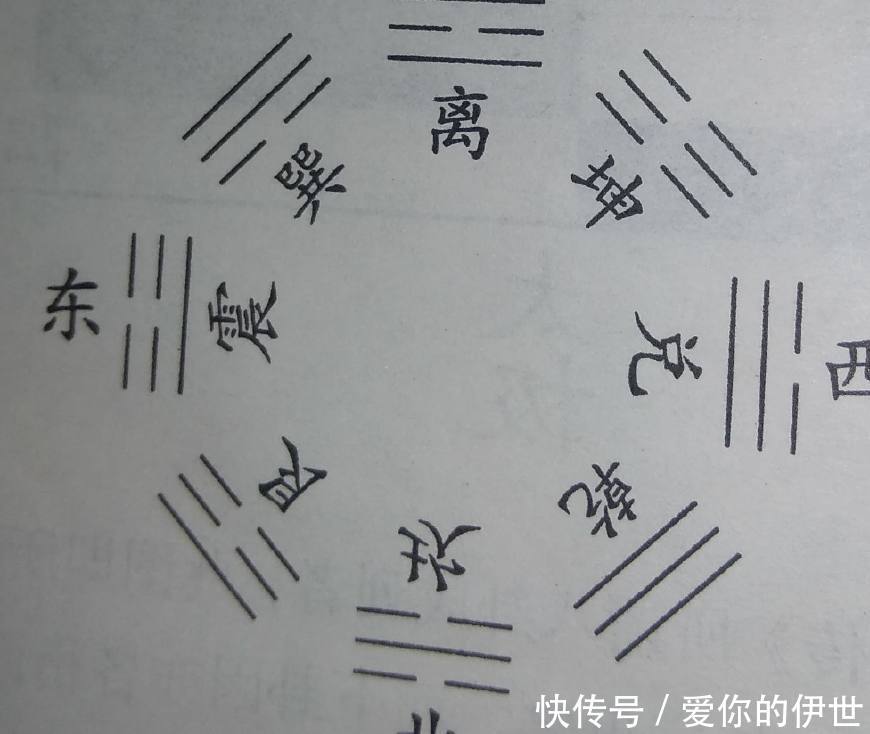 离
巽
坤
东
震
兑
西
艮
乾
坎
北
快传号 / 爱你的伊世